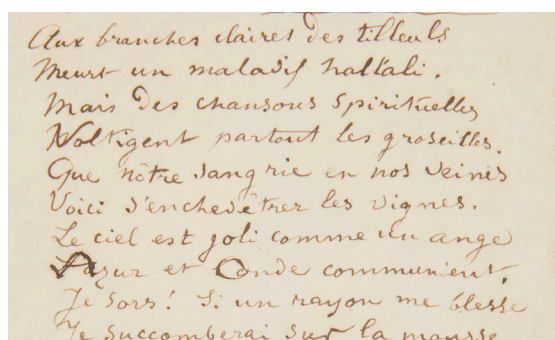 Aux branches claires des tilleuls
Meurt un maladif hallali.
Mais des chansons spirituelles
Voltigent partout les groseilles.
Que nôtre sang rie en nos veines
Voici s'enchevêtrer les vignes.
Le ciel est joli comme un ange
Azur et Onde communient.
Je sors! Si un rayon me blesse
Je succomberai sur la mousse